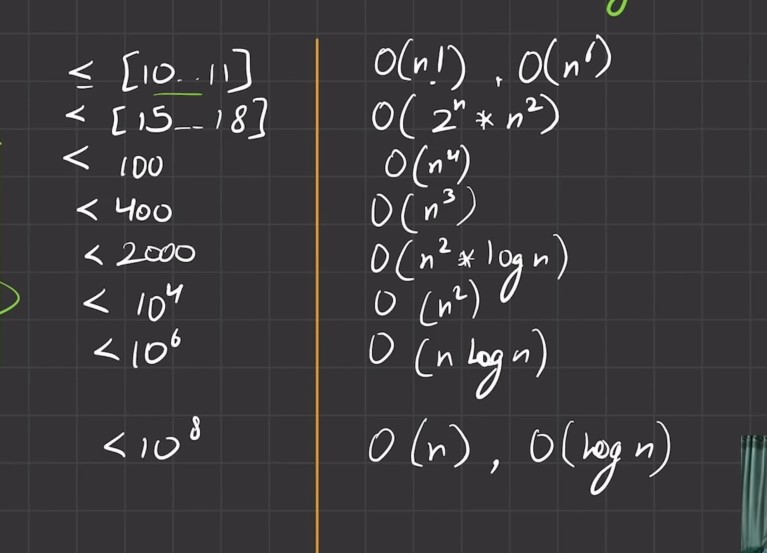 ≤ [10..11] O(n!), O(n⁶)
< [15--18] O(2ⁿ * n²)
< 100 O(n⁴)
< 400 O(n³)
< 2000 O(n² * log n)
< 10⁴ O(n²)
< 10⁶ O(n log n)
< 10⁸ O(n), O(log n)